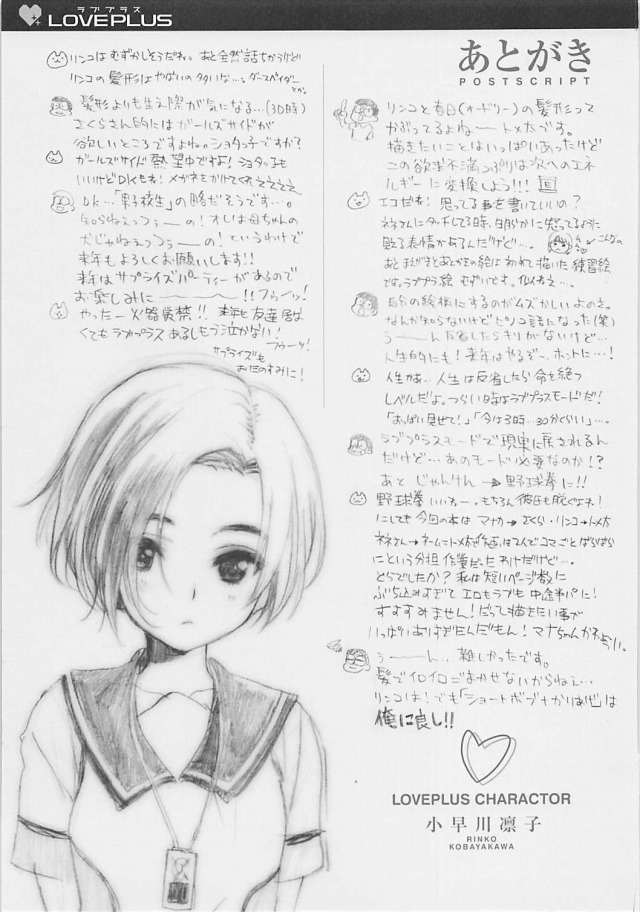 ラブプラス
LOVEPLUS
あとがき
POSTSCRIPT
リンコと春日(オードリー)の髪形って
かぶってるよねートメたです。
描きたいことはいっぱいあったけど
この欲求不満っぷりは次へのエネ
ルギーに変換しよう!!!
エコだね!思ってる事を書いていいの?
ネネさんにタッチしてる時、明らかに怒ってるように
見える表情があるんだけど…。
こんなの
あとまえがきとあとがきの絵はわれて描いた練習絵
です。ラブプラ絵むずいです。似ねえ…。
自分の絵柄にするのがムズかしいよのさ。
なんか知らないけどピノコ語になった(笑)
うーーん反省したらキリがないけど…
人生的にも!来年はやるぞー、ホントに…!
人生かぁ…人生は反省したら命を絶つ
レベルだよ。つらい時はラブプラスモードだ!
「おっぱい見せて!」「今は3時…30分くらい」…。
ラブプラスモードで現実に戻されるん
だけど…あのモード必要なのか!?
あと じゃんけん→野球拳に!!
野球拳いいねー。もちろん彼氏も脱ぐよね!
にしても今回の本は マナカ→さくら・リンコ→トメた
ネネさん→ネームニトメた
という分担作業だったわけだけど…。
どうでしたか?私は短いページ数に
ぶち込みすぎて エロもラブも中途半パに!
すすすみません!だって描きたい事が
いっぱいありすぎたんだもん!マナちゃんかわいい。
うーーん…難しかったです。
髪でイロイロごまかせないからねえ…
リンコは!でも「ショートボブナかりあげ」は
俺に良し!!
LOVEPLUS CHARACTOR
小早川凛子
RINKO
KOBAYAKAWA
リンコはむずかしそうだね。あと全然話ちがうけど
リンコの髪形はやばいのタタいな…。ダースベイダーとか。
髪形よりも生え際が気になる…(3D時)
さくらさん的にはガールズサイドが
欲しいところですよね。ショタっ子ですか?
ガールズサイド熱望中ですよ!ショタっ子も
いいけどDKもね!メガネをかけてくれえええええ
DK…「男子校生」の略だそうです…。
知らねえっつぅーの!オレは母ちゃんの
犬じゃねえっつぅーの!というわけで
来年もよろしくお願いします!!
来年はサプライズパーティーがあるので
お楽しみにーーー!!フゥーッ!
やったー 火路貴禁!!来年も友達居な
くてもラブプラスあるしもう泣かない!
フゥーッ!
サプライズも
おたのすみに!